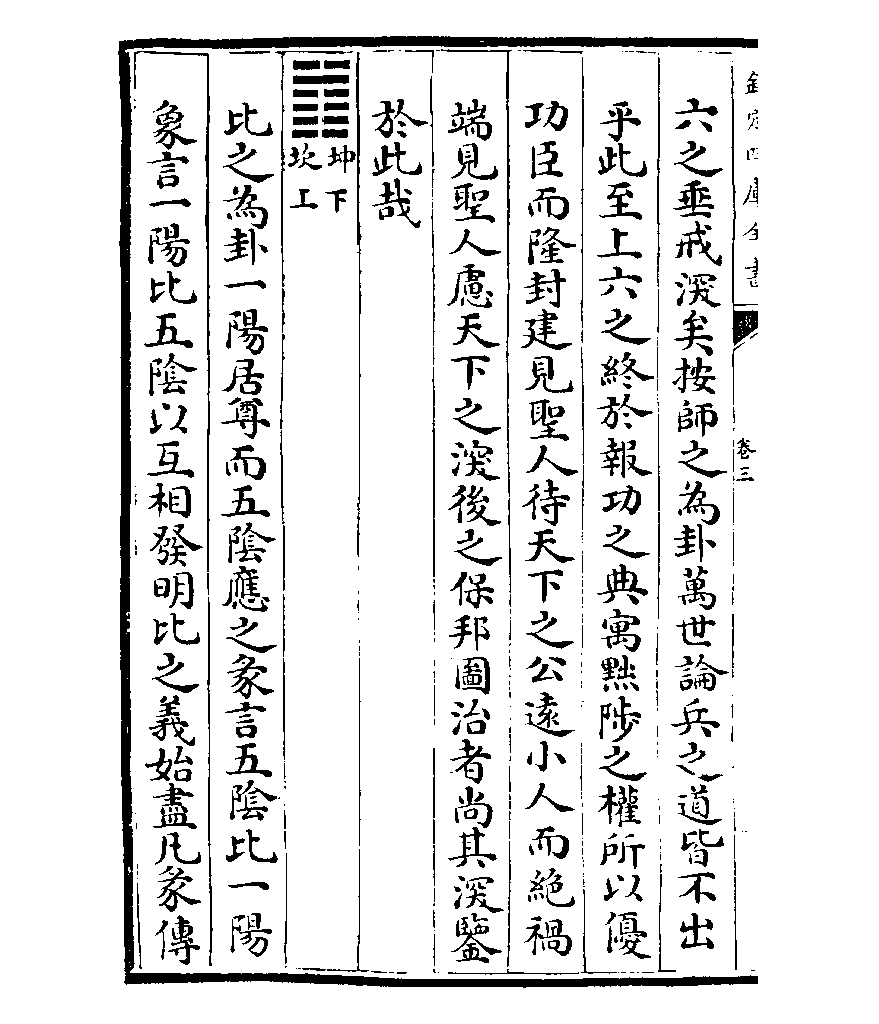 欽定四庫全書
卷三
六之垂戒深矣按師之為卦萬世論兵之道皆不出
乎此至上六之終於報功之典寓黜陟之權所以優
功臣而隆封建見聖人待天下之公遠小人而絶禍
端見聖人慮天下之深後之保邦圖治者尚其深鑒
於此哉
坤下
坎上
比之為卦一陽居尊而五陰應之彖言五陰比一陽
象言一陽比五陰以互相發明比之義始盡凡彖傳